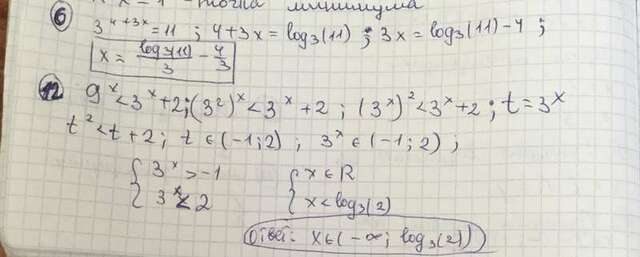 x = 1 - точка минимума
⑥ 3^{4+3x} = 11 ; 4+3x = log₃(11) ; 3x = log₃(11) - 4 ;
x = \frac{log₃(11)}{3} - \frac{4}{3}
⑫ 9^x < 3^x + 2 ; (3²)^x < 3^x + 2 ; (3^x)² < 3^x + 2 ; t = 3^x
t² < t + 2 ; t ∈ (-1; 2) ; 3^x ∈ (-1; 2) ;
{ 3^x > -1 { x ∈ R
{ 3^x < 2 { x < log₃(2)
Ответ: x ∈ (-∞; log₃(2))